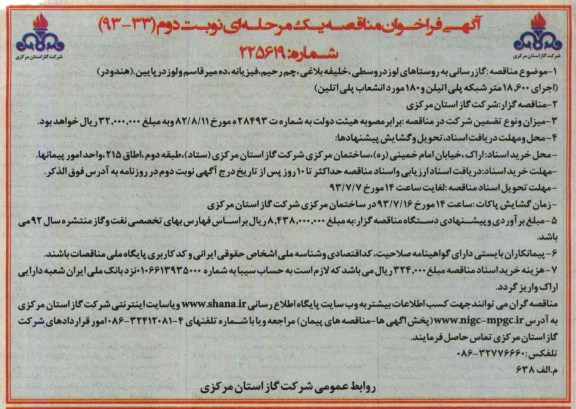 آگهی فراخوان مناقصه یک مرحله ای نوبت دوم (۳۳-۹۳)
شماره: ۲۲۵۶۱۹
شرکت گاز استان مرکزی
شرکت گاز استان مرکزی
۱-موضوع مناقصه: گازرسانی به روستاهای لوزدروسطی، خلیفه بلاغی، چم رحیم، فیزیانه، ده میر قاسم ولوزدرپایین. (هندودر)
(اجرای ۱۸,۶۰۰ متر شبکه پلی اتیلن و ۱۸۰ مورد انشعاب پلی اتلین)
۲-مناقصه گزار: شرکت گاز استان مرکزی
۳-میزان ونوع تضمین شرکت در مناقصه: برابر مصوبه هیئت دولت به شماره ت ۲۸۴۹۳ه مورخ ۸۲/۸/۱۱ وبه مبلغ ۳۲,۰۰۰,۰۰۰ ریال خواهد بود.
۴-محل ومهلت دریافت اسناد، تحویل وگشایش پیشنهادها:
-محل خرید اسناد: اراک، خیابان امام خمینی (ره)، ساختمان مرکزی شرکت گاز استان مرکزی (ستاد)، طبقه دوم، اطاق ۲۱۵، واحد امور پیمانها.
-مهلت خرید اسناد: دریافت اسناد ارزیابی واسناد مناقصه حداکثر تا ۱۰ روز پس از تاریخ درج آگهی نوبت دوم در روزنامه به آدرس فوق الذکر.
-مهلت تحویل اسناد مناقصه: لغایت ساعت ۱۴ مورخ ۹۳/۷/۷
-زمان گشایش پاکات: ساعت ۱۴ مورخ ۹۳/۷/۱۶ در شرکت گاز استان مرکزی
۵-مبلغ برآوردی و پیشنهادی دستگاه مناقصه گزار: به مبلغ ۸,۴۳۸,۰۰۰,۰۰۰ ریال بر اساس فهارس بهای تخصصی نفت وگاز منتشره سال ۹۲ می
باشد.
۶-پیمانکاران بایستی دارای گواهینامه صلاحیت، کداقتصادی وشناسه ملی اشخاص حقوقی ایرانی و کد کاربری پایگاه ملی مناقصات باشند.
۷-هزینه خرید اسناد مناقصه مبلغ ۳۲۴,۰۰۰ ریال می باشد که لازم است به حساب سیبا به شماره ۰۱۰۶۶۱۳۹۳۵۰۰۰ نزد بانک ملی ایران شعبه دارایی
اراک واریز گردد.
مناقصه گران می توانند جهت کسب اطلاعات بیشتر به وب سایت پایگاه اطلاع رسانی www.shana.ir ویاسایت اینترنتی شرکت گاز استان مرکزی
به آدرس www.nigc-mpgc.ir (پخش آگهی ها-مناقصه های پیمان) مراجعه ویا با شماره تلفنهای ۴-۳۲۴۱۲۰۸۱-۰۸۶ امور قراردادهای شرکت
گاز استان مرکزی تماس حاصل فرمایند.
تلفکس: ۳۲۷۷۶۶۶۰-۰۸۶
م.الف ۶۳۸
روابط عمومی شرکت گاز استان مرکزی